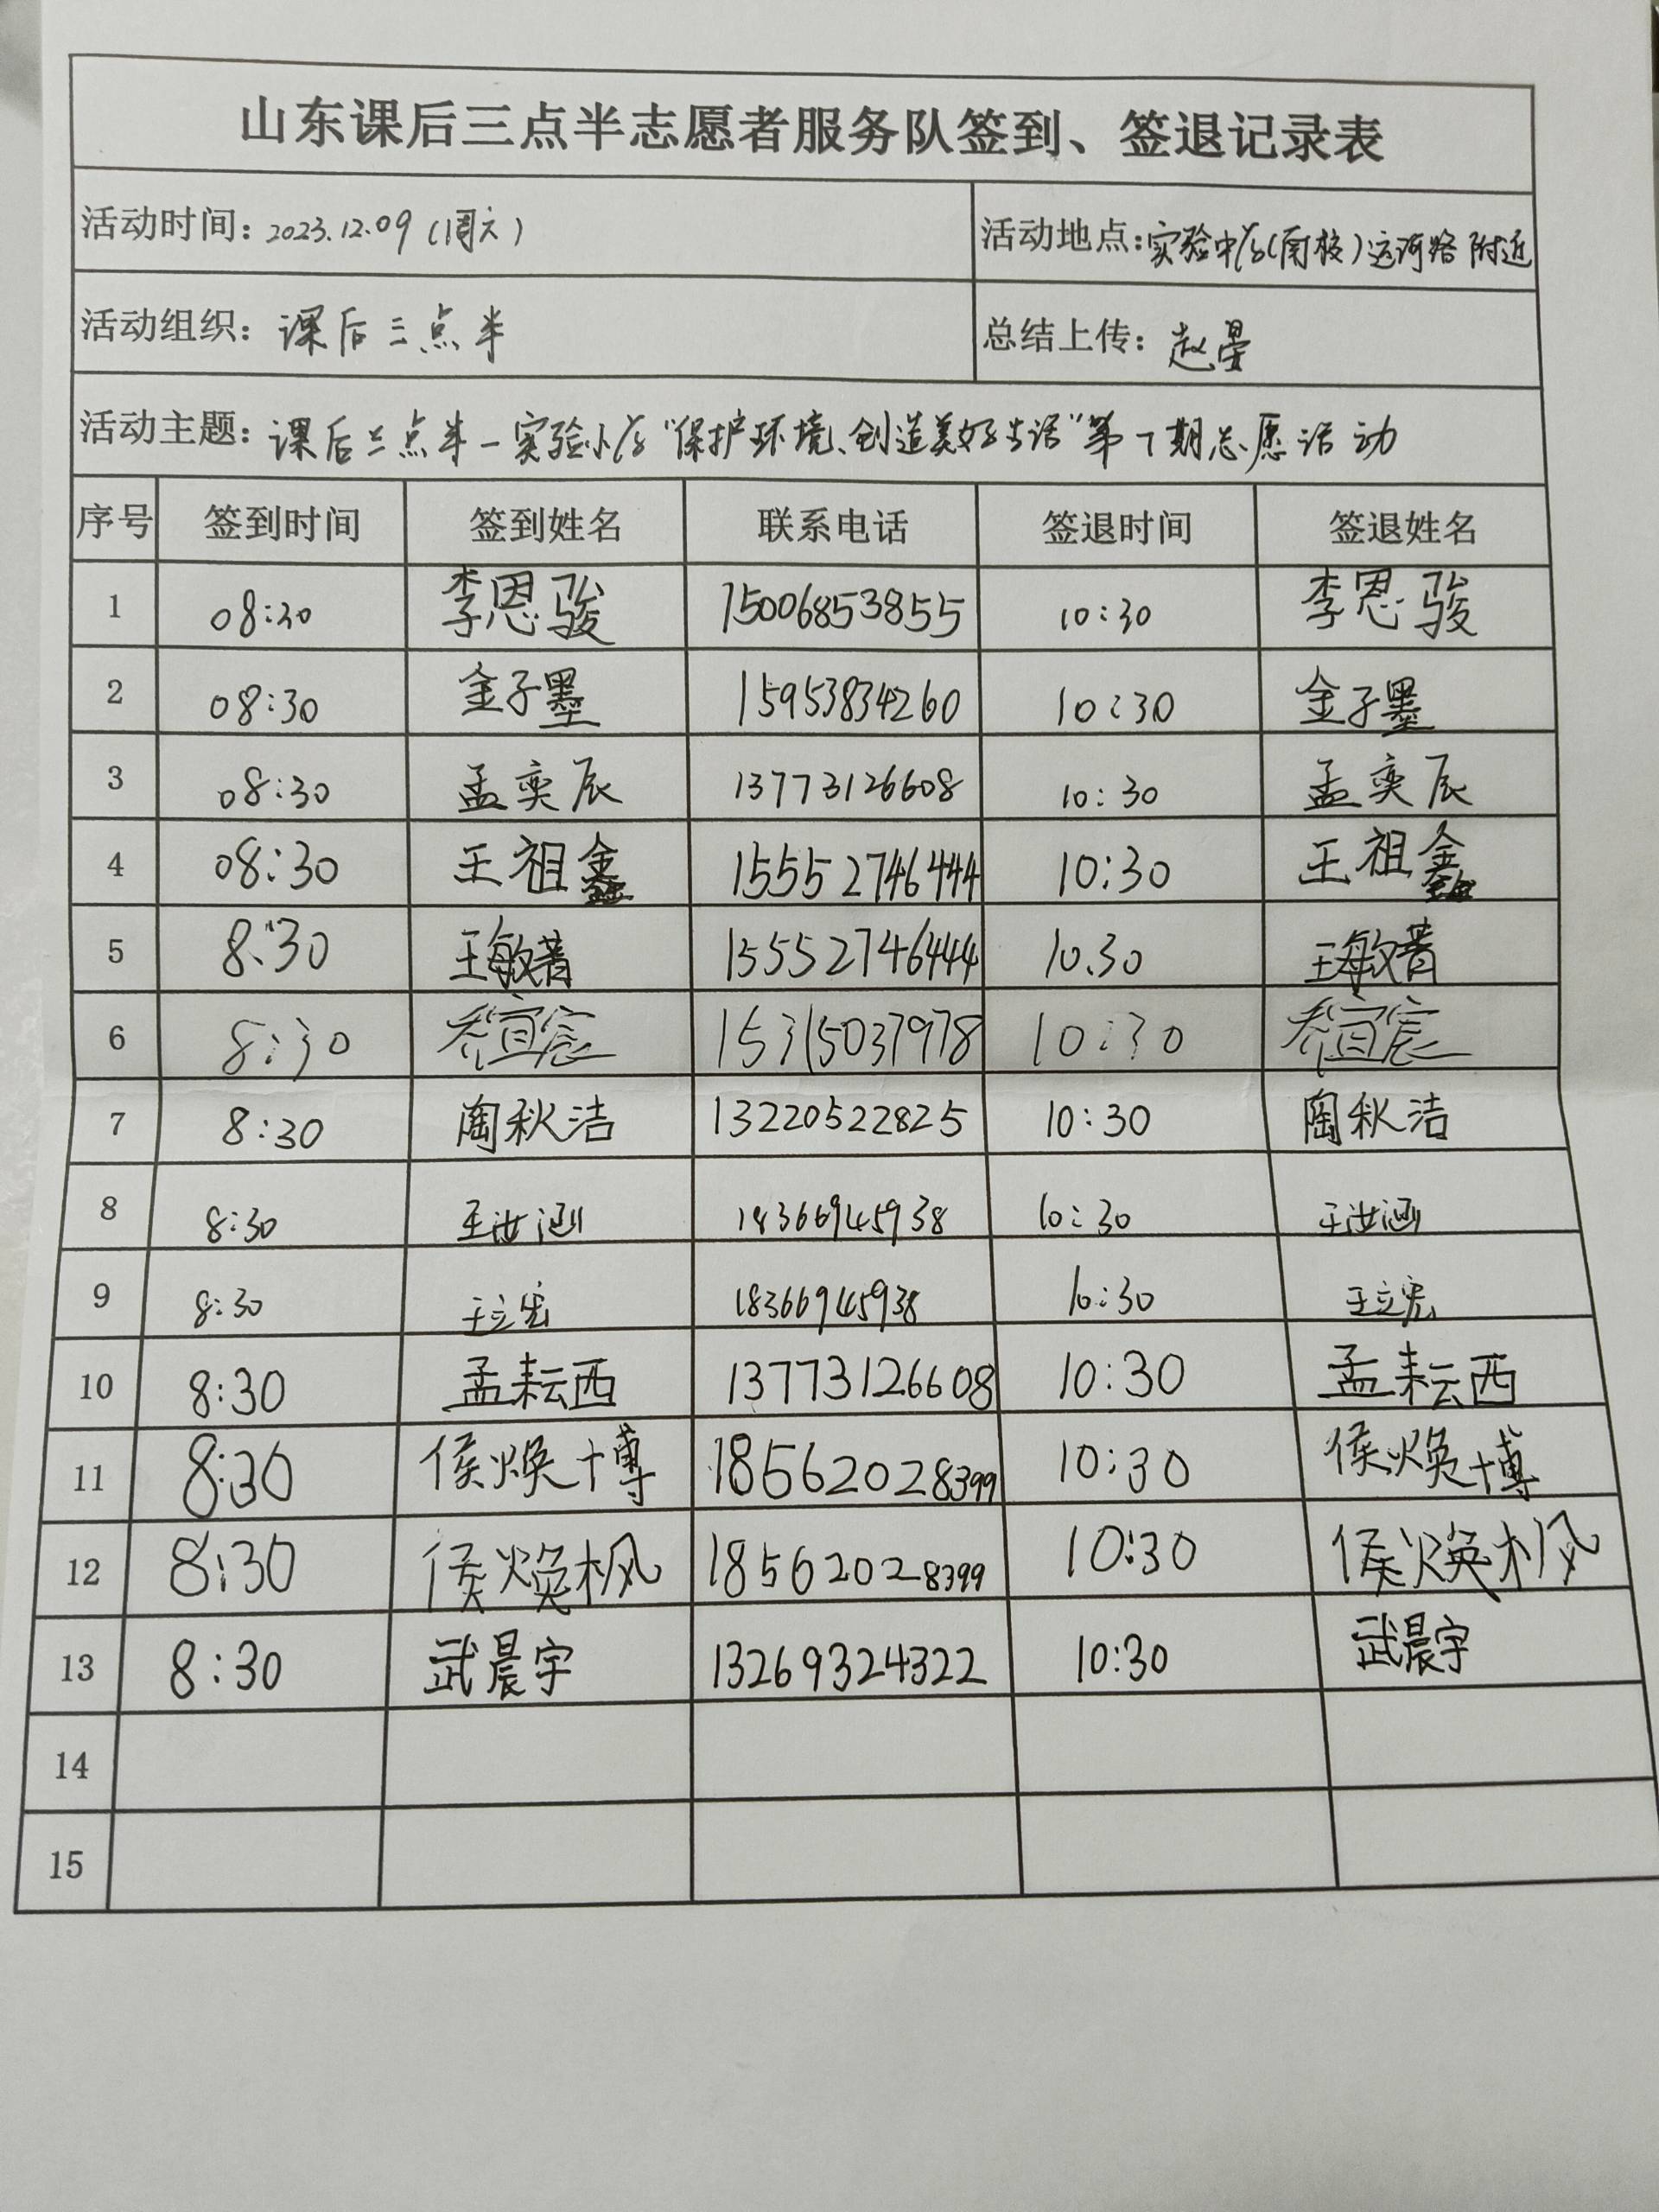 山东课后三点半志愿者服务队签到、签退记录表
活动时间：2023.12.09（周六） 活动地点：实验中学（南校）运河路附近
活动组织：课后三点半 总结上传：赵晏
活动主题：课后三点半－实验小学“保护环境、创造美好生活”第7期志愿活动
序号 签到时间 签到姓名 联系电话 签退时间 签退姓名
1 08:30 李恩骏 15006853855 10:30 李恩骏
2 08:30 金子墨 15953834260 10:30 金子墨
3 08:30 孟奕辰 13773126608 10:30 孟奕辰
4 08:30 王祖鑫 15552746444 10:30 王祖鑫
5 8:30 王敏菁 15552746444 10.30 王敏菁
6 8:30 乔宜宸 15315037978 10:30 乔宜宸
7 8:30 陶秋洁 13220522825 10:30 陶秋洁
8 8:30 王汝涵 18366945938 10:30 王汝涵
9 8:30 王立宏 18366945938 10:30 王立宏
10 8:30 孟耘西 13773126608 10:30 孟耘西
11 8:30 侯焕博 18562028399 10:30 侯焕博
12 8:30 侯焕枫 18562028399 10:30 侯焕枫
13 8:30 武晨宇 13269324322 10:30 武晨宇
14
15